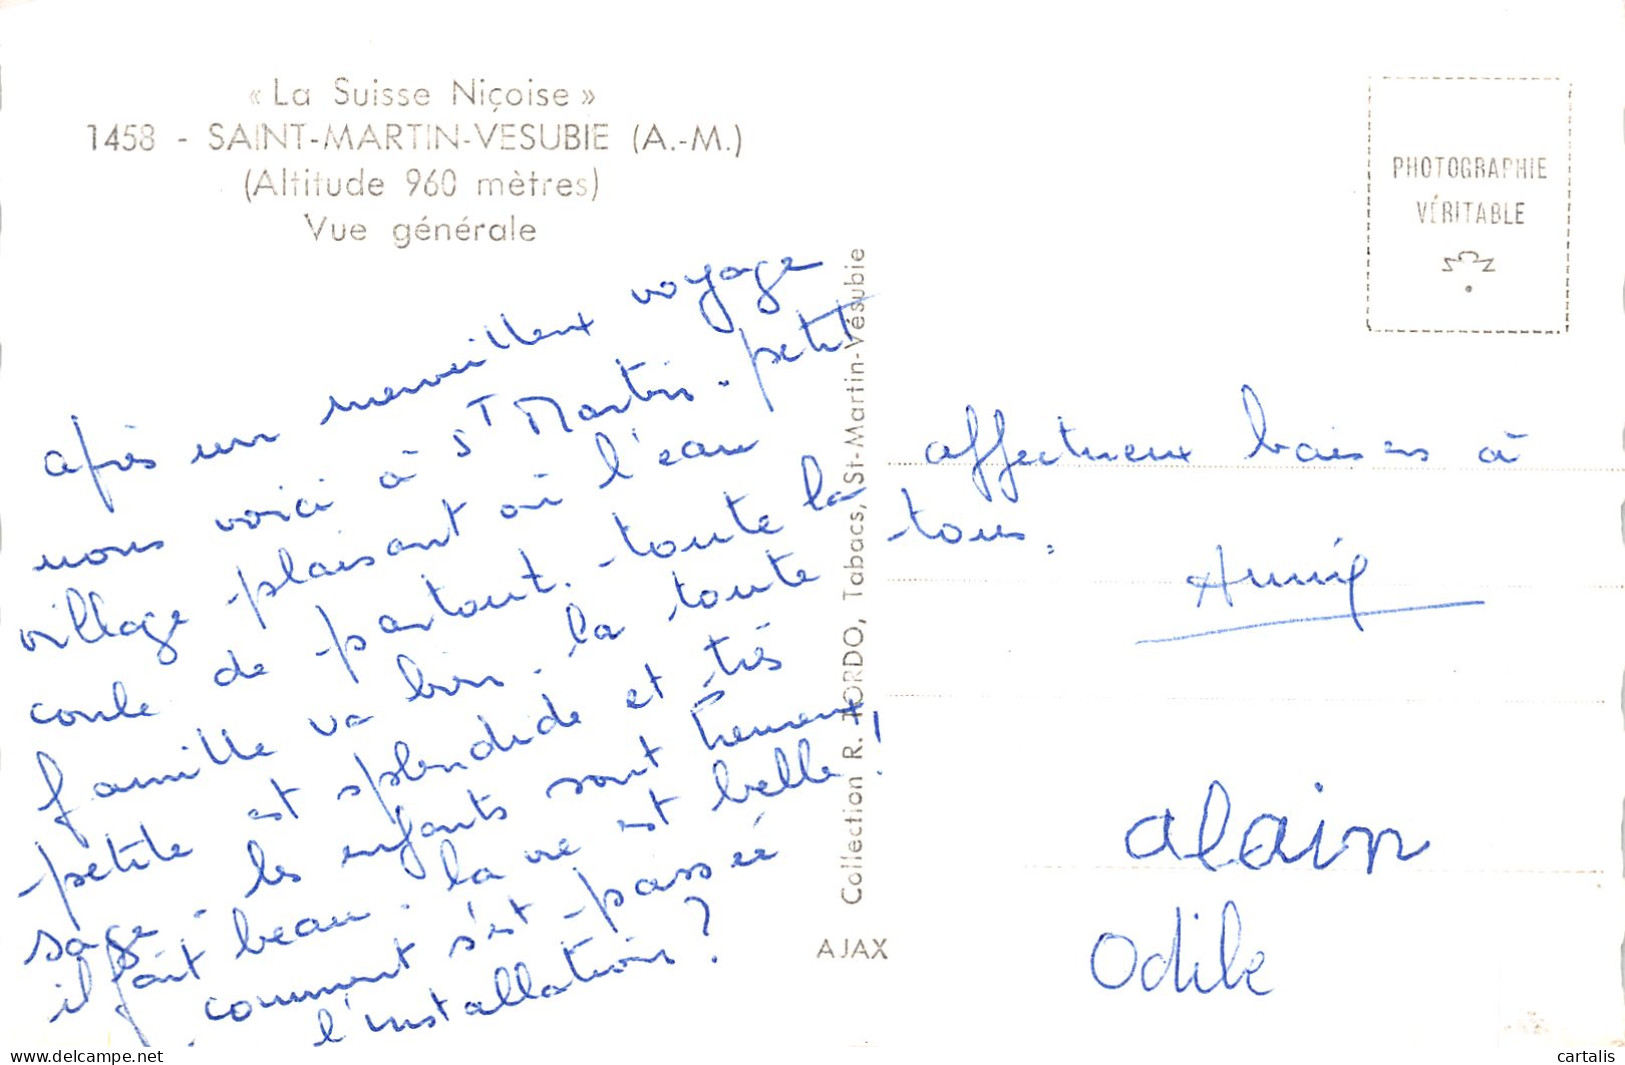 « La Suisse Niçoise »
1458 - SAINT-MARTIN-VESUBIE (A.-M.)
(Altitude 960 mètres)
Vue générale
PHOTOGRAPHIE
VÉRITABLE
après un merveilleux voyage
nous voici à St Martin - petit
village plaisant où l'eau
coule de partout. toute la
famille va bien. la toute
petite est splendide et très
sage - les enfants sont heureux,
il fait beau. la vie est belle !
comment s'est passée
l'installation ?
affectueux baisers à
tous.
Annie
alain
Odile
Collection R. TORDO, Tabacs, St-Martin-Vésubie
AJAX
www.delcampe.net
cartalis